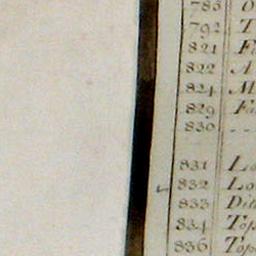 785 O
792 T
821 Fi
822 A
824 M
829 Fa
830 --
831 Lo
832 Lo
833 Dit
834 Top
836 Top